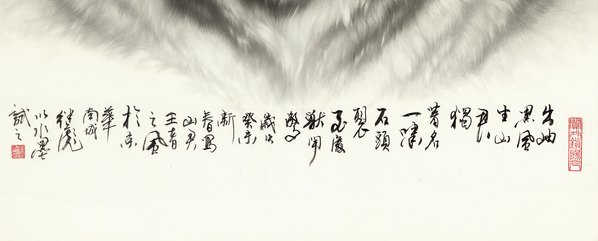 出岫
黑風
生山
君
獨
著名
一嘯
石頭
裂
獸聞
驚
歲次
癸未
新
春寫
山君
王者
之風
於京
華
南城
以水墨
試之